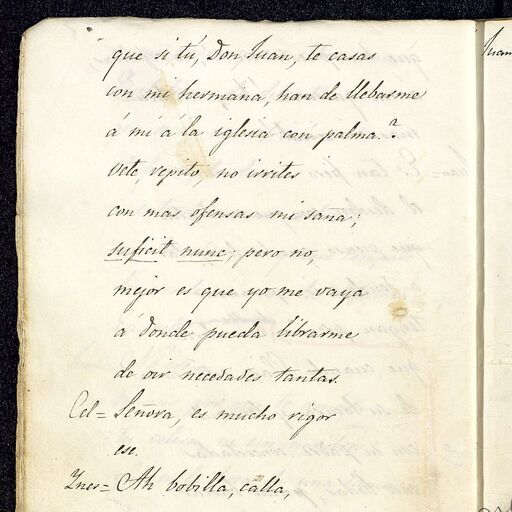 que si tú, Don Juan, te casas
con mi hermana, han de llebarme
á mí á la iglesia con palma.?
Vete, repito, no irrites
con mas ofensas mi saña;
suficit nunc; pero no,
mejor es que yo me vaya
a donde pueda librarme
de oir necedades tantas.
Cel= Señora, es mucho rigor
ese.
Ines= Ah bobilla, calla,
Juan